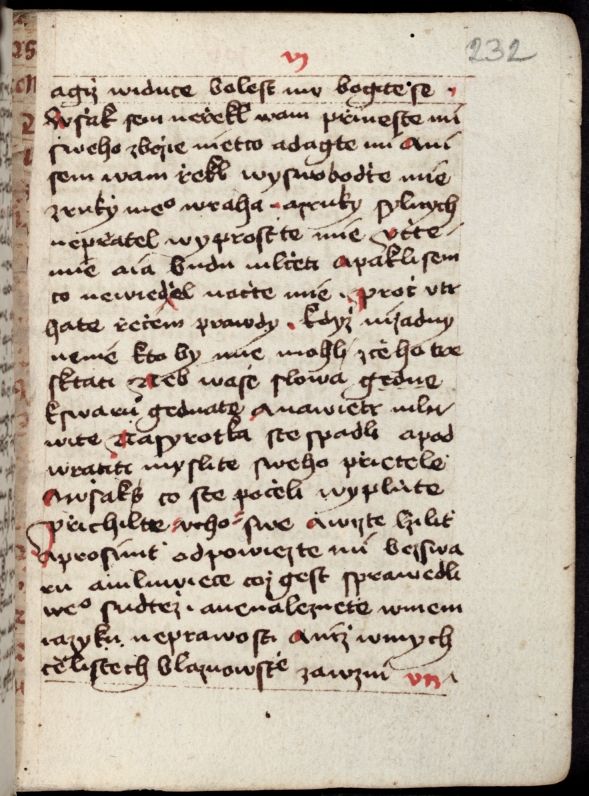 vj
232
agiz widuce bolest mu bogite se
Wssak sem nerzekl wam przineste mi
sweho zbozie nietco a dagte mi Ani
sem wam rzekl wyswobodte mie
z ruky neo wraha a z ruky sylnych
neprzatel wyprostte mie vczte
mie a ia budu mlczeti A pakli sem
co newiedel naucte mie proc vtr
hate rzeczem prawdy kdyz nizadny
nenie kto by mie mohl z czeho tre
sktati a k
w swaru gednate A nawietr mlu
wite Na syrotka ste spadli a pod
wratiti myslite sweho przietele
Awssaks co ste poczeli wyplnte
Przichilte vcho swe A wizte
a prosimt odpowiezte mi bez swa
ru a mluwiece coz gest sprawedli
weo sudtez a nenaleznete w mem
iazyku neprawosti Aniz w mych
czelistech blaznowstie zawzni vij